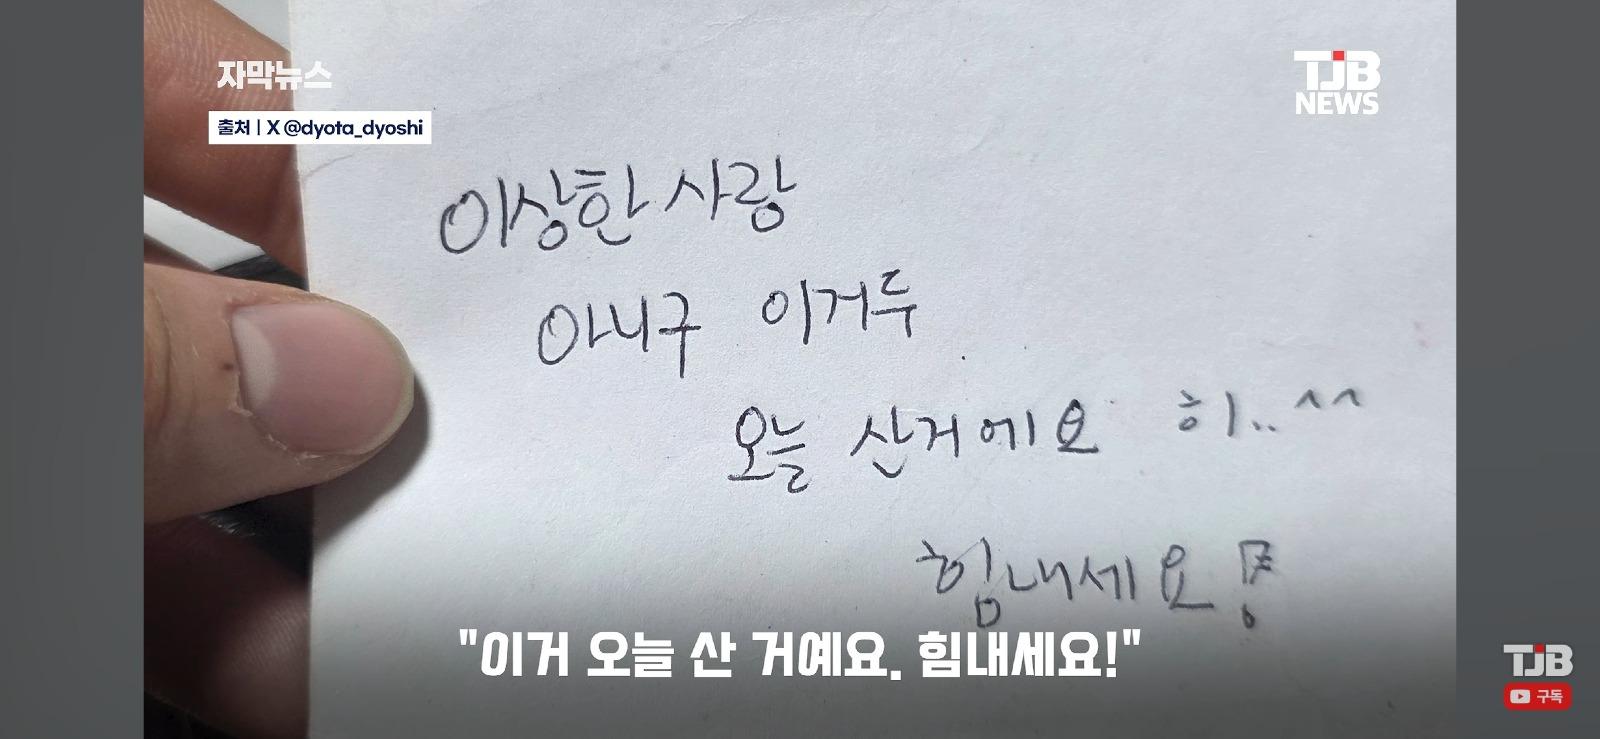 자막뉴스
TJB
NEWS
출처 | X @dyota_dyoshi
이상한 사랑
아니구 이거두
오늘 산거에요 히..^^
힘내세요!
"이거 오늘 산 거예요. 힘내세요!"
TJB
구독